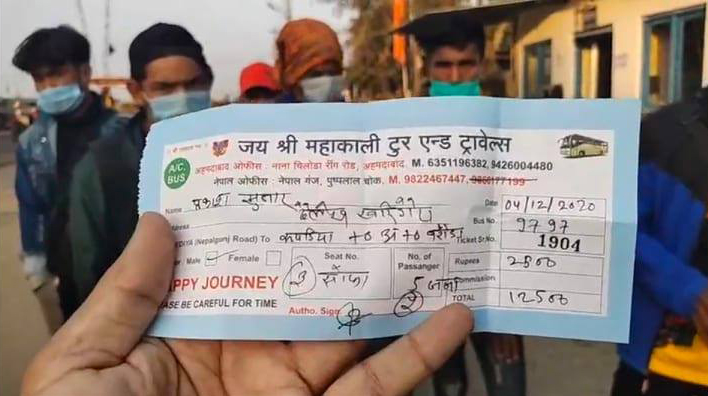 जय श्री महाकाली टुर एन्ड ट्रावेल्स
A/C. BUS
अहमदाबाद ओफीस : नाना चिलोडा रींग रोड, अहमदाबाद. M. 6351196382, 9426004480
नेपाल ओफीस : नेपाल गंज, पुष्पलाल चोक. M. 9822467447,
Name प्रकाश सुनार
Date 04/12/2020
Bus No. 9797
(Nepalganj Road) To कपडिया
Ticket Sr.No. 1904
Male Female
Seat No.
No. of Passanger
Rupees 2500
सोफा
5 जना
TOTAL 12500
PPY JOURNEY
ASE BE CAREFUL FOR TIME
Autho. Sign